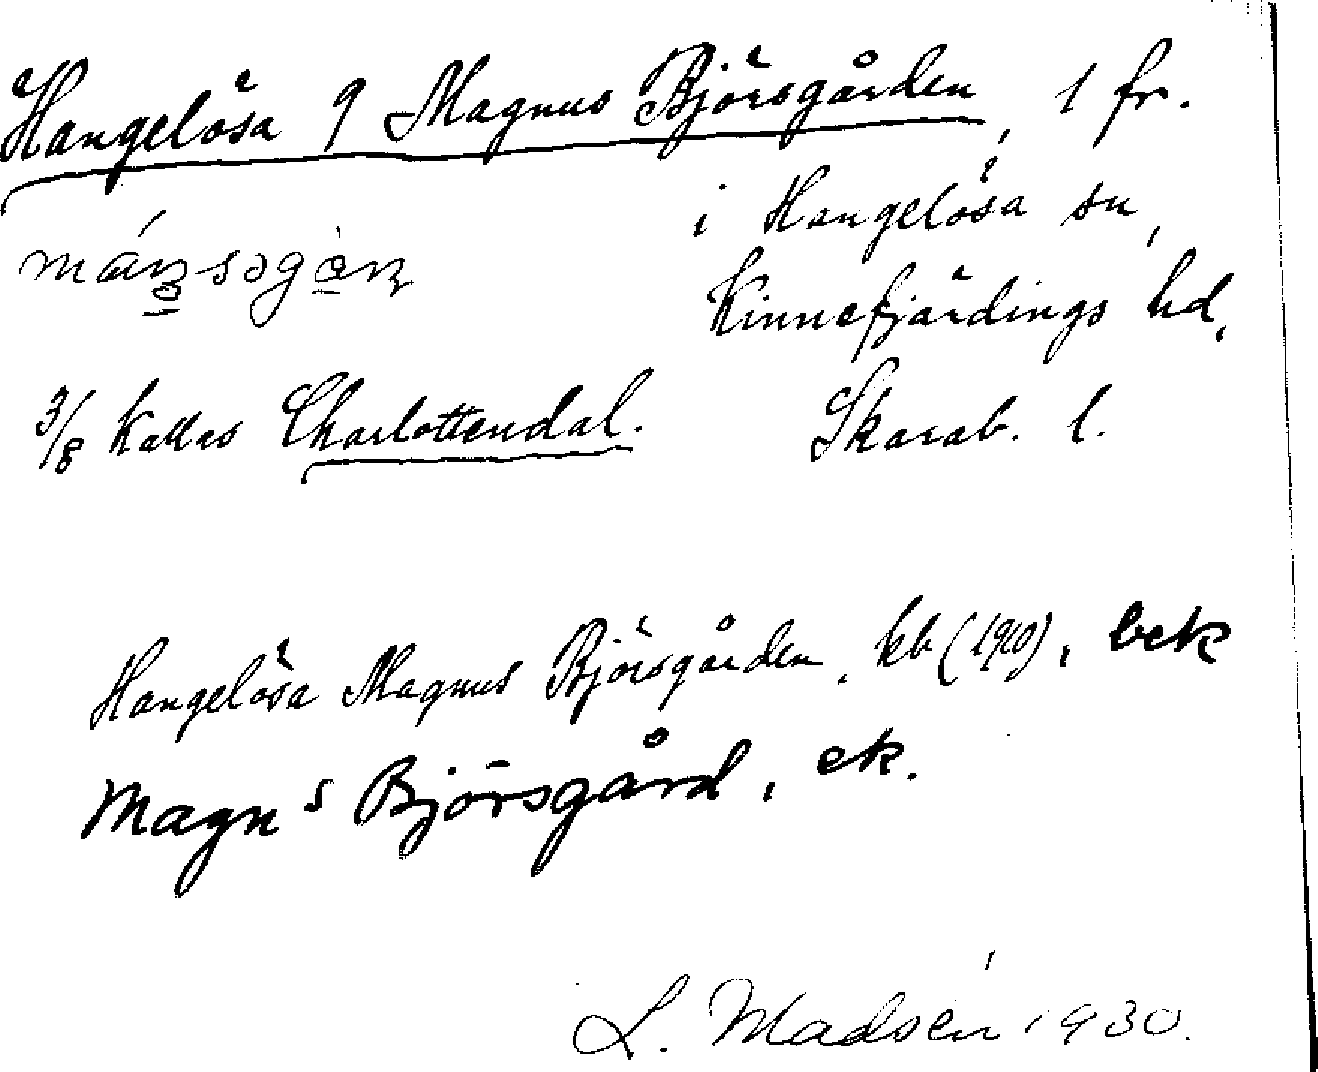 Hangelösa 9 Magnus Björsgården, 1 fr.
i Hangelösa sn,
Kinnefjärdings hd,
Skarab. l.
3/8 kallas Charlottendal.
Hangelösa Magnus Björsgården, kb (1910), bek
Magns Björsgård, ek.
L. Madsén 1930.